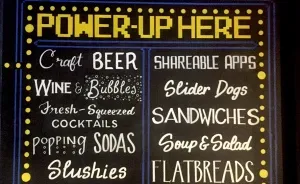 POWER-UP HERE
Craft BEER
WINE & Bubbles
Fresh-Squeezed
COCKTAILS
POPPING SODAS
Slushies
SHAREABLE APPS
Slider Dogs
SANDWICHES
Soup & Salad
FLATBREADS